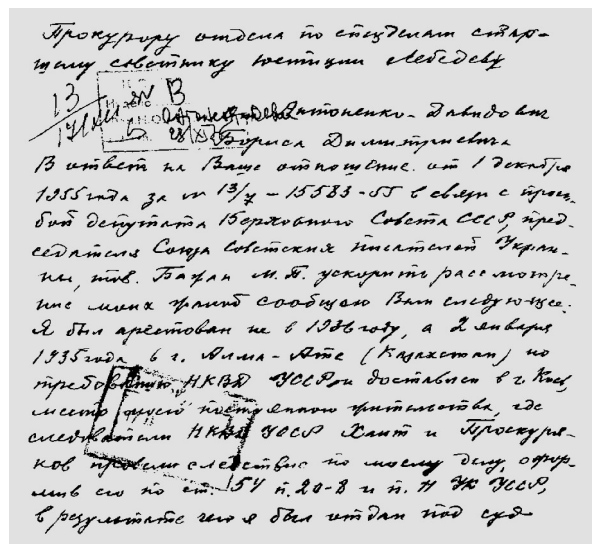 Прокурору отдела по спецделам стар-
шему советнику юстиции Лебедеву
13
В
17/XII
Антоненко-Давидович
Бориса Димитриевича
В ответ на Ваше отношение от 1 декабря
1955 года за № 13/7 – 15583-55 в связи с прось-
бой депутата Верховного Совета СССР, пред-
седателя Союза Советских писателей Украи-
ны, тов. Бажан М. П. ускорить рассмотре-
ние моих жалоб сообщаю Вам следующее:
Я был арестован не в 1936 году, а 2 января
1935 года в г. Алма-Ате (Казахстан) по
требованию НКВД УССР и доставлен в г. Киев,
место моего постоянного жительства, где
следователи НКВД УССР Хаит и Проскуря-
ков провели следствие по моему делу, офор-
мив его по ст. 54 п. 20-8 и п. Н УК УССР,
в результате чего я был отдан под суд